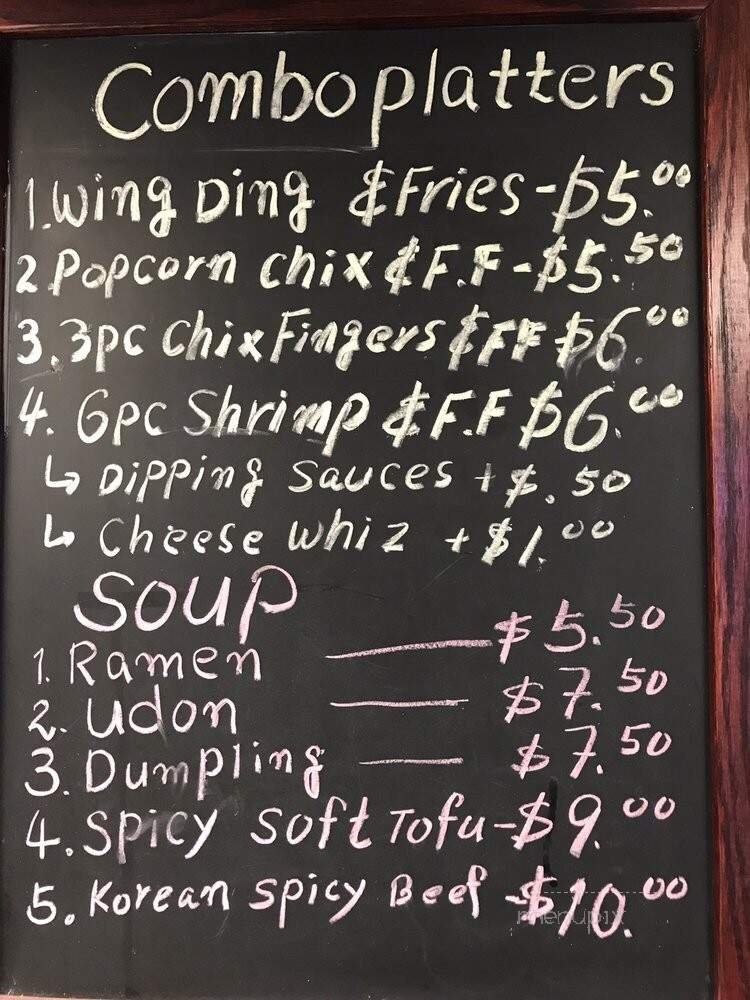 Combo platters
1. Wing Ding & Fries - $5.00
2 Popcorn chix & F.F - $5.50
3. 3pc Chix Fingers & FF $6.00
4. 6pc Shrimp & F.F $6.00
↳ Dipping sauces + $.50
↳ Cheese whiz + $1.00
SOUP
1. Ramen — $5.50
2. udon — $7.50
3. Dumpling — $7.50
4. Spicy Soft Tofu - $9.00
5. Korean Spicy Beef - $10.00
menupix